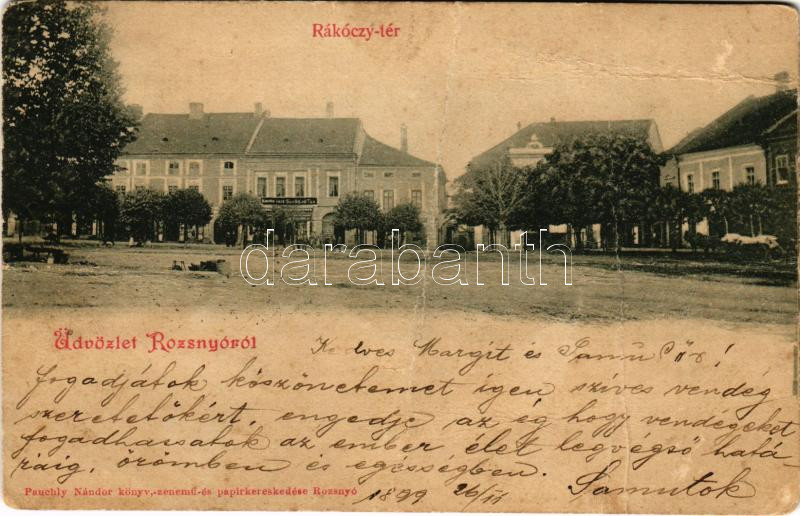 Rákóczy-tér
darabanth
Üdvözlet Rozsnyóról
Kedves Margit és
fogadjátok köszönetemet igen szíves vendég
szeretetőkért, engedje az ég hogy vendégeket
fogadhassatok az ember élet legvégső hatá-
ráig, örömben és egességben.
Pauchly Nándor könyv,-zenemű-és papirkereskedése Rozsnyó
1899 26/II Samutok